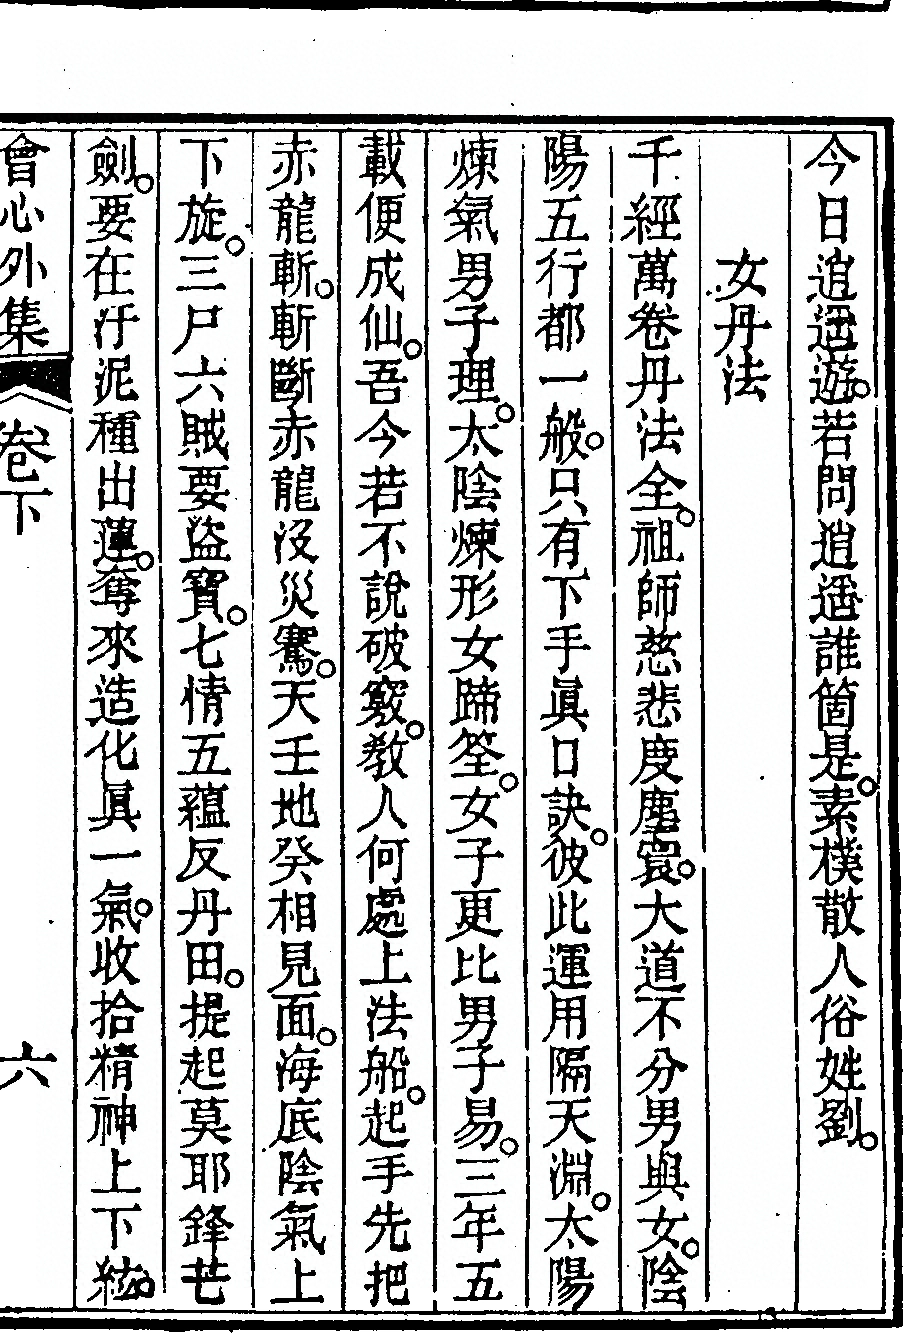 今日逍遥遊。若問逍遥誰箇是。素樸散人俗姓劉。
女丹法
千經萬卷丹法全。祖師慈悲度塵寰。大道不分男與女。陰
陽五行都一般。只有下手眞口訣。彼此運用隔天淵。太陽
煉氣男子理。太陰煉形女蹄筌。女子更比男子易。三年五
載便成仙。吾今若不說破竅。教人何處上法船。起手先把
赤龍斬。斬斷赤龍没災騫。天壬地癸相見面。海底陰氣上
下旋。三尸六賊要盜寶。七情五蘊反丹田。提起莫耶鋒芒
劍。要在汙泥種出蓮。奪來造化眞一氣。收拾精神上下紘。
會心外集 卷下 六